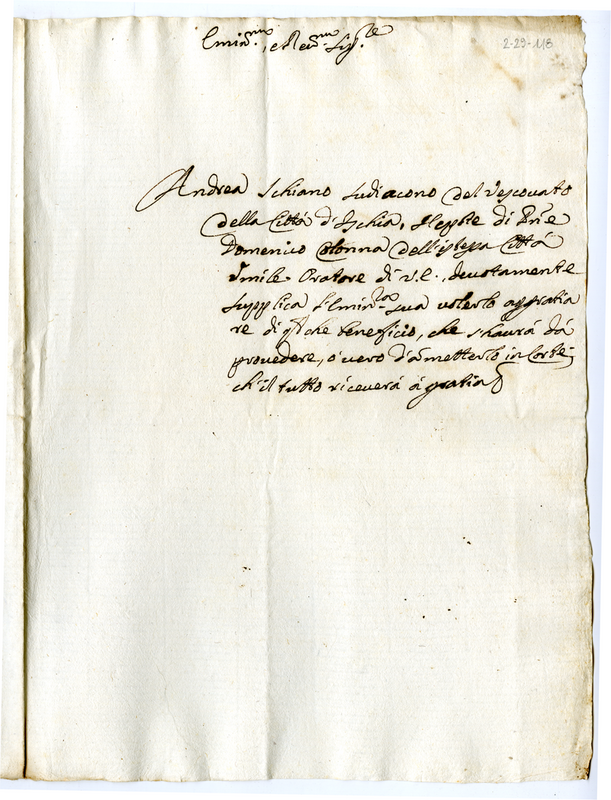 Emin.mo, e Reu.mo Sig.re
2-29-118
Andrea Schiano sudiacono del Vescouato
della Città d'Ischia, di Pr̃e
Domenico Colonna dell'istessa Città
umile Oratore di V.E., deuotamente
supplica l'Emin.za sua volerlo aggratia
re di q̃l che beneficio, che s'haurà dà
prouedere, o' uero dà metterlo in Corte
ch'il tutto riceuerà à gratia